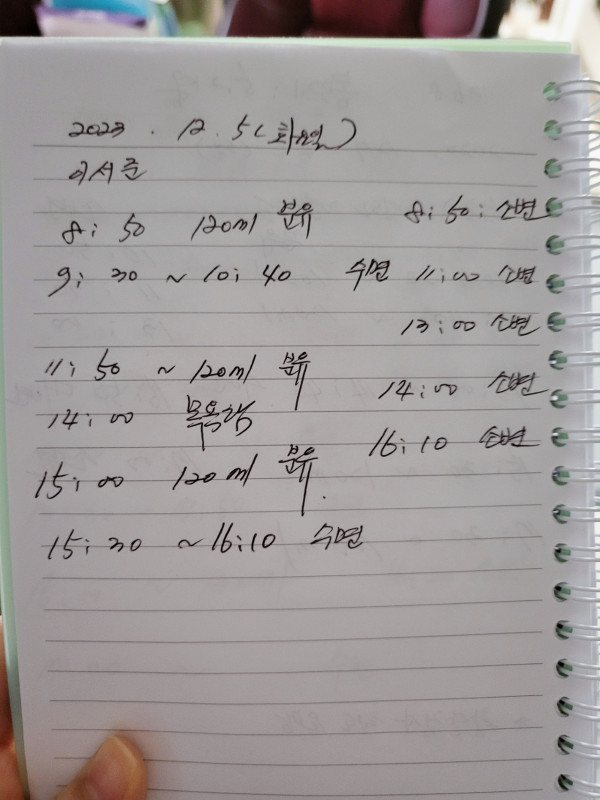 2023 . 12. 5 (화요일)
이서준
8: 50 120ml 분유 8: 50: 소변
9: 30 ~ 10: 40 수면 11:00 소변
13:00 소변
11: 50 ~ 120ml 분유
14:00 소변
14: 00 목욕
16:10 소변
15: 00 120ml 분유.
15: 30 ~ 16:10 수면